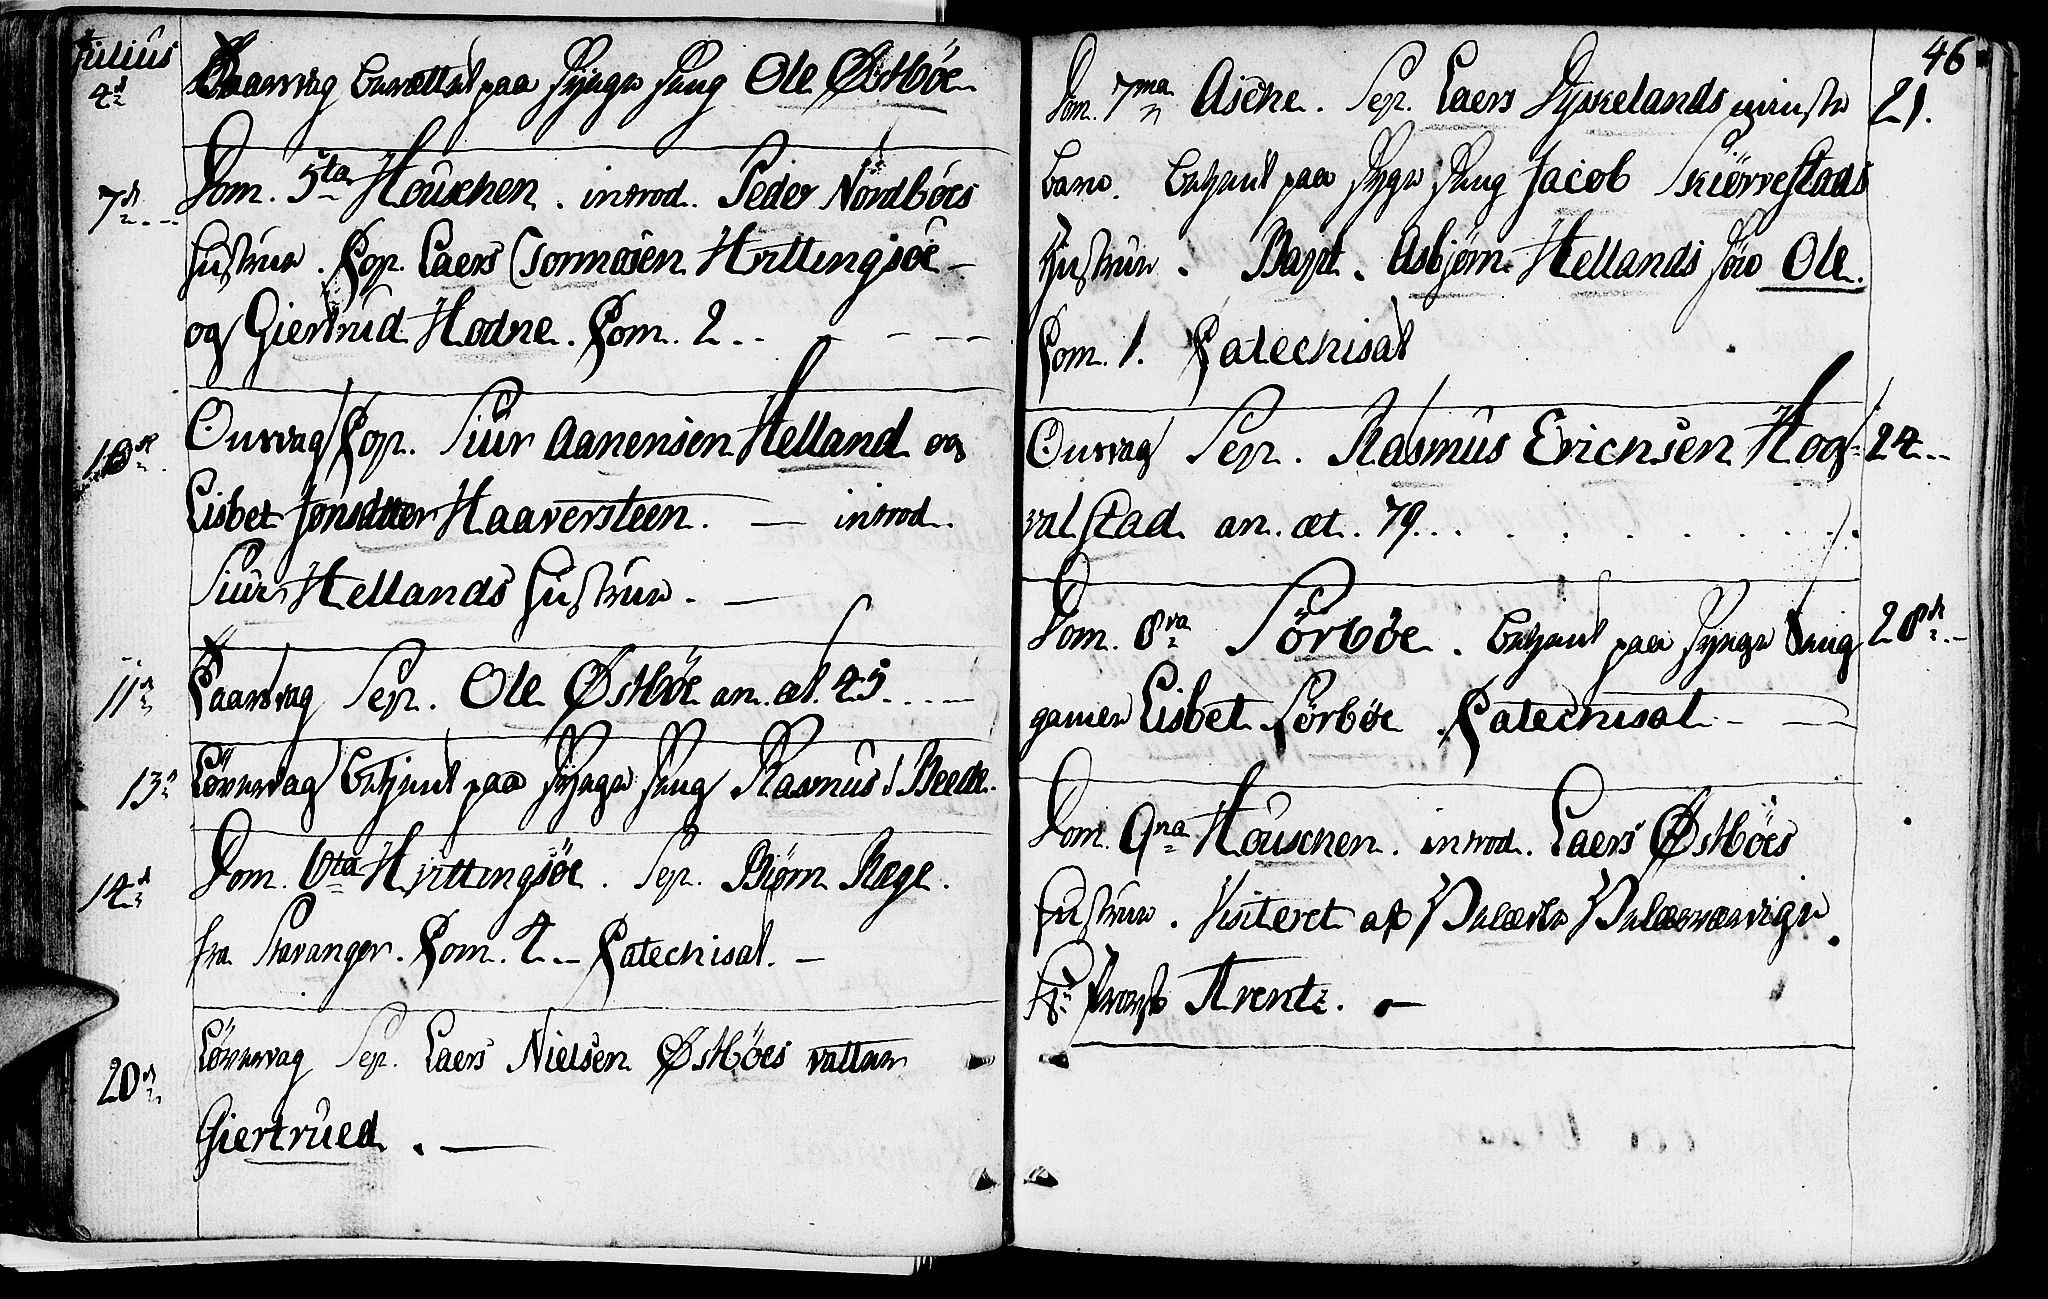 Julius
4d Taarsdag berættet paa Syyge Seng Ole Østböe
7d Dom. 5ta Houschen. introd. Peder Nordböes
Hustrue. Cop. Laers Gonmosen Hettingsöe
og Giertrud Hodne. Com. 2..
10d Onsdag Cop. Siur Aanensen Helland og
Lisbet Jonsdtter Haaversteen. — introd.
Siur Hellands Hustrue. —
11d Taarsdag Sep. Ole Østböe an. æt. 45....
13d Löverdag betjent paa Syyge Seng Rasmus Reede.
14d Dom. 6ta Hettingsöe. Sep. Biörn Rege.
fra Stavanger. Com. 4. — Catechisat. —
20d Löverdag Sep. Laers Nielsen Østböes datter
Giertrued. —
46
Dom. 7ma Aschе. Sep. Laers Tyskelands minste 21.
barn. betjent paa Syge Seng Jacob Skiörrestads
Hustrue. Bapt. Asbjörn Hellands Sön Ole.
Com. 1. Catechisat
Onsdag Sep. Rasmus Erichsen Hog- 24..
valstad an. æt. 79...
Dom. 8va Sörböe. betjent paa Syyge Seng 28d
gamle Lisbet Sörböe. Catechisat —
Dom. 9na Houschen. introd. Laers Østböes
Hustrue. Visiteret af
Hr Provst Arentz. —